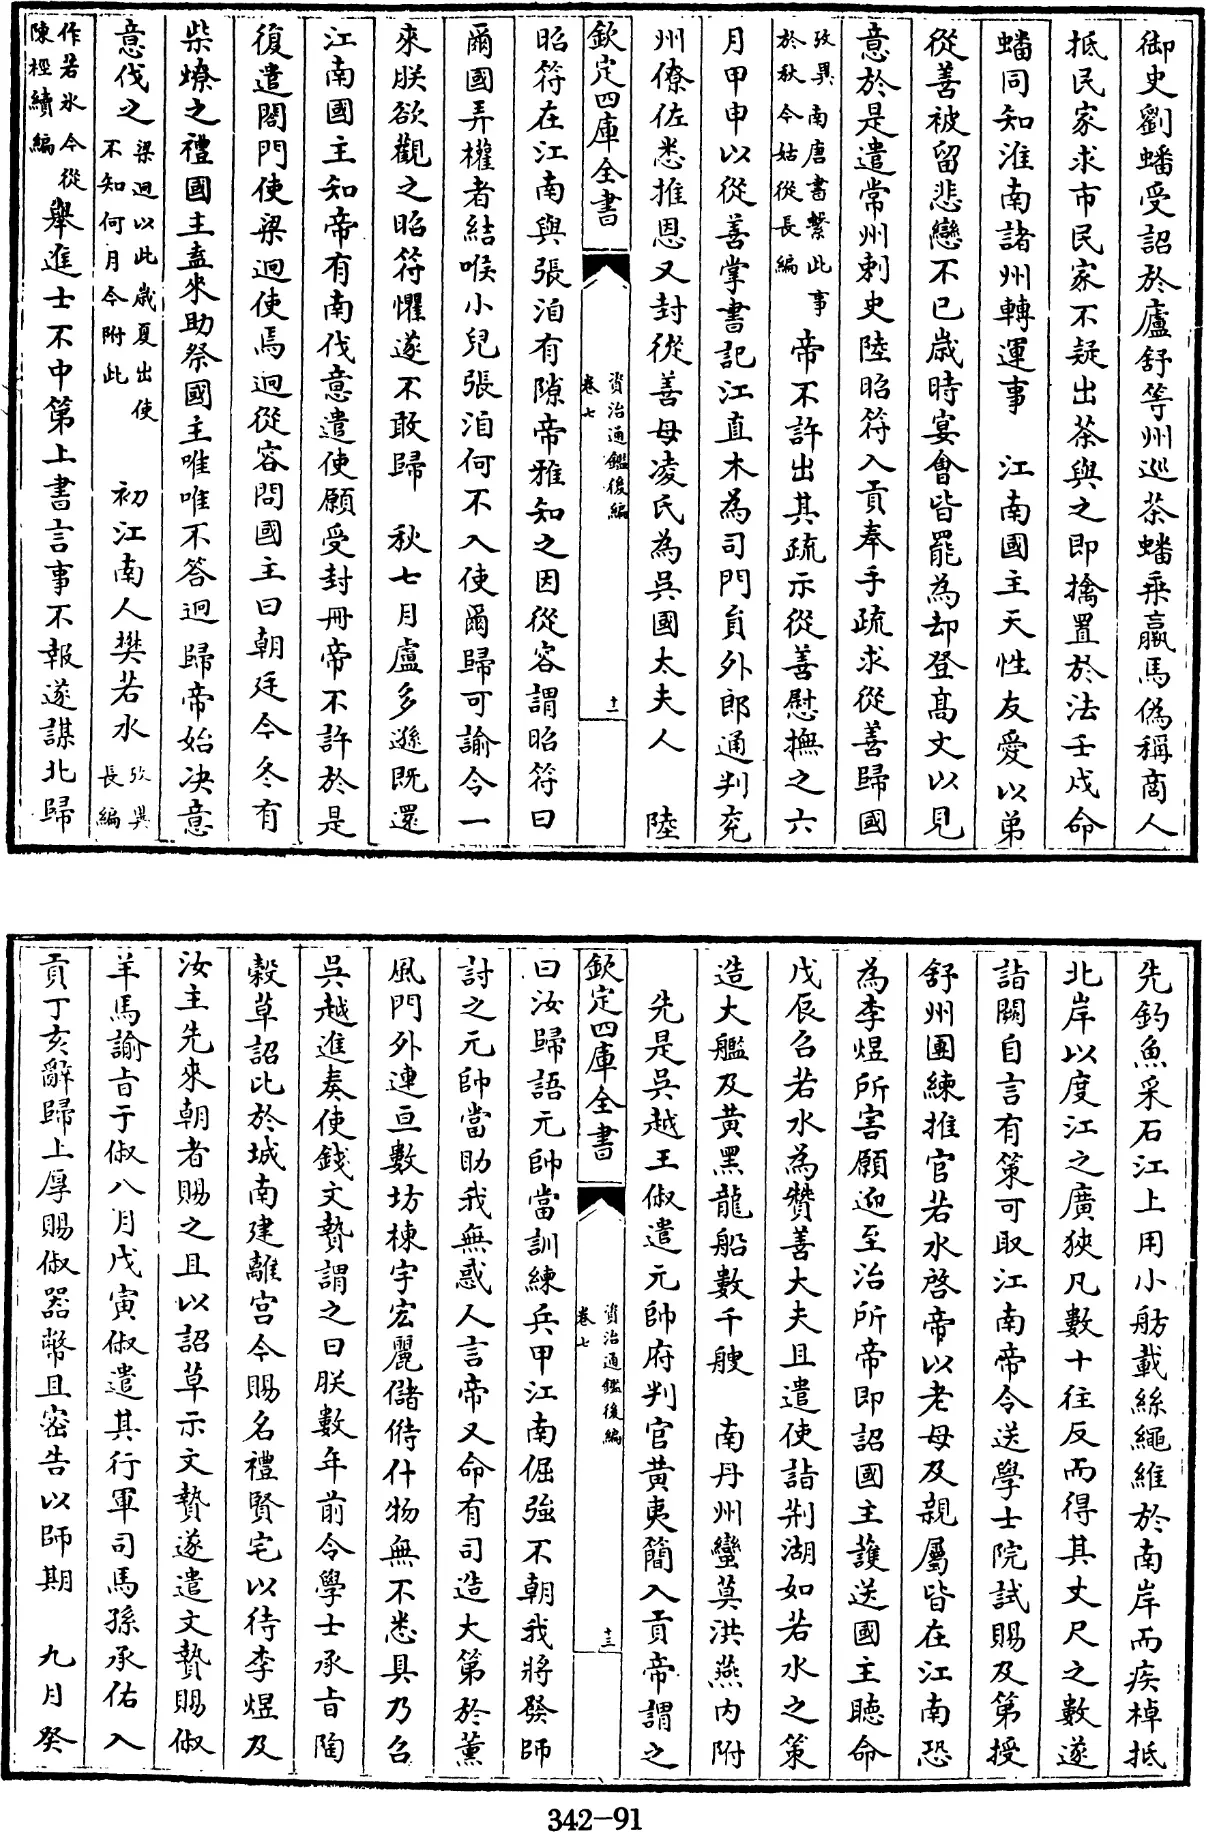 御史劉蟠受詔於廬舒等州巡茶蟠乘羸馬偽稱商人
抵民家求市民家不疑出茶與之即擒置於法壬戌命
蟠同知淮南諸州轉運事　江南國主天性友愛以弟
從善被留悲戀不已歲時宴會皆罷為却登高文以見
意於是遣常州刺史陸昭符入貢奉手疏求從善歸國
攷異南唐書繫此事
於秋今姑從長編
帝不許出其疏示從善慰撫之六
月甲申以從善掌書記江直木為司門員外郎通判兖
州僚佐悉推恩又封從善母凌氏為吳國太夫人　陸
欽定四庫全書
資治通鑑後編
卷七
十一
昭符在江南與張洎有隙帝雅知之因從容謂昭符曰
爾國弄權者結喉小兒張洎何不入使爾歸可諭令一
來朕欲觀之昭符懼遂不敢歸　秋七月盧多遜既還
江南國主知帝有南伐意遣使願受封冊帝不許於是
復遣閤門使梁迥使焉迥從容問國主曰朝廷今冬有
柴燎之禮國主盍來助祭國主唯唯不答迥歸帝始决意
意伐之
梁迥以此歲夏出使
不知何月今附此
初江南人樊若水
攷異
長編
作若氷今從
陳桱續編
舉進士不中第上書言事不報遂謀北歸
先釣魚采石江上用小舫載絲繩維於南岸而疾棹抵
北岸以度江之廣狹凡數十往反而得其丈尺之數遂
詣闕自言有策可取江南帝令送學士院試賜及第授
舒州團練推官若水啓帝以老母及親屬皆在江南恐
為李煜所害願迎至治所帝即詔國主護送國主聽命
戊辰召若水為贊善大夫且遣使詣荆湖如若水之策
造大艦及黄黑龍船數千艘　南丹州蠻莫洪燕内附
先是吳越王俶遣元帥府判官黄夷簡入貢帝謂之
欽定四庫全書
資治通鑑後編
卷七
十三
曰汝歸語元帥當訓練兵甲江南倔強不朝我將發師
討之元帥當助我無惑人言帝又命有司造大第於薰
風門外連亘數坊棟宇宏麗儲偫什物無不悉具乃召
吳越進奏使錢文贄謂之曰朕數年前令學士承旨陶
穀草詔比於城南建離宫令賜名禮賢宅以待李煜及
汝主先來朝者賜之且以詔草示文贄遂遣文贄賜俶
羊馬諭旨于俶八月戊寅俶遣其行軍司馬孫承佑入
貢丁亥辭歸上厚賜俶器幣且密告以師期　九月癸
342-91